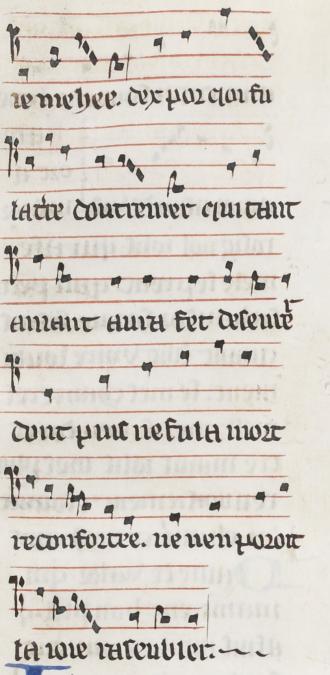 ie me hee. dex por qoi fu
la tr̃e doutremer qui tant
amant aura fet deseurer
dont puis ne fu la mort
reconfortee. ne nen poroit
la ioie rasenbler.